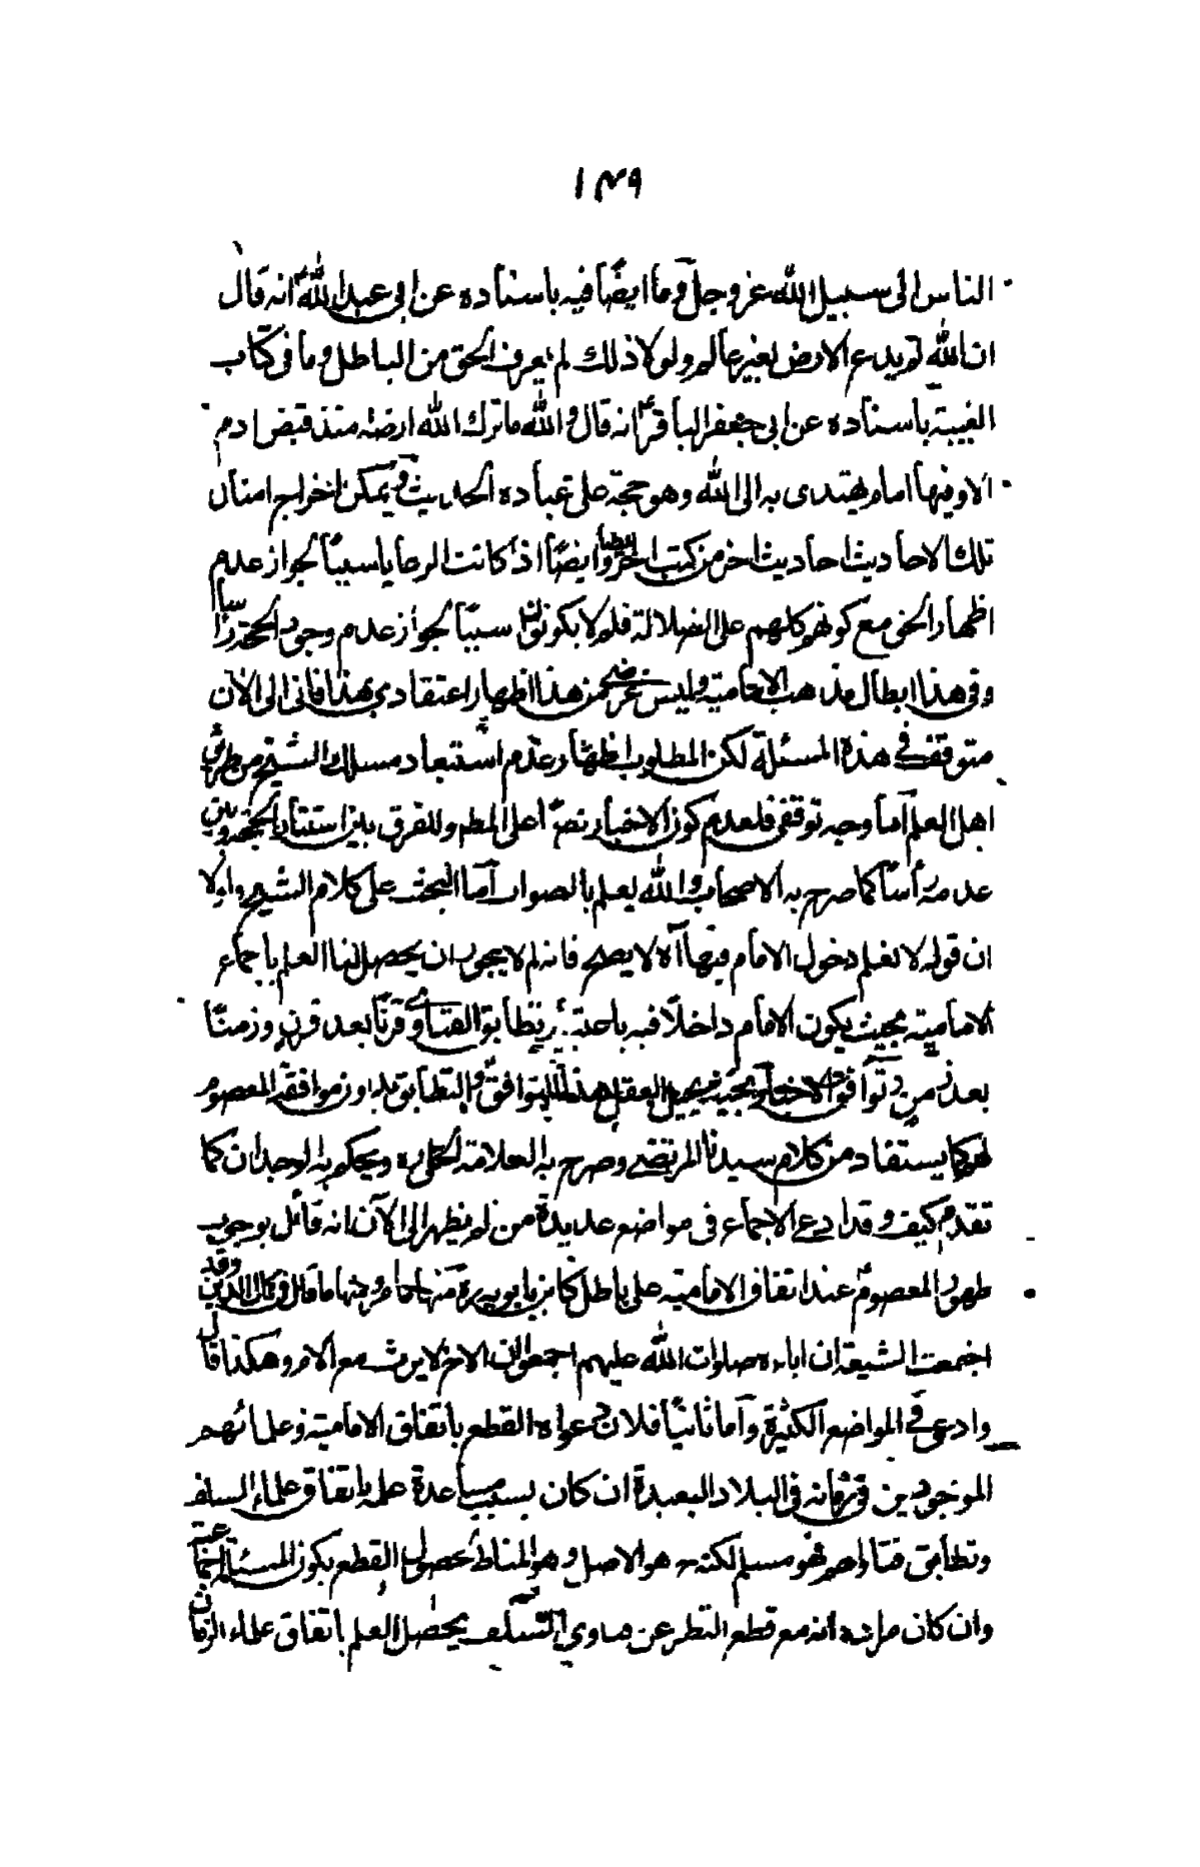 ١٣٩
الناس الى سبيل الله عز وجل وما ايضًا فيه باسناده عن ابي عبد الله انه قال
ان الله لم يدع الارض بغير عالم ولولا ذلك لم يعرف الحق من الباطل وما في كتاب
الغيبة باسناده عن ابي جعفر الباقر انه قال والله ما ترك الله ارضه منذ قبض ادم
الا وفيها امام يهتدى به الى الله وهو حجة على عباده الحديث ويمكن اخراج امثال
تلك الاحاديث احاديث اخر من كتب اخر وايضًا اذا كانت الرعايا سببًا لجواز عدم
اظهار الحق مع كونهم كلهم على الضلالة فلم لا يكون سببًا لجواز عدم وجود الحجة راسا
وفي هذا ابطال مذهب الامامية وليس غرضي من هذا اظهار اعتقادي بهذا فاني الى الآن
متوقف في هذه المسئلة لكن المطلوب اظهار عدم استبعاد مسلك الشيخ من طرائق
اهل العلم اما وجه توقفي فلعدم كون الاخبار نصًا على المط وللفرق بين استتار الحجة وبين
عدمه رأسًا كما صرح به الاصحاب والله يعلم بالصواب اما البحث على كلام الشيخ اولا
ان قوله لا نعلم دخول الامام فيها آه لا يصح فانه لم لا يجوز ان يحصل لنا العلم باجماع
الامامية بحيث يكون الامام داخلًا فيه تطابق الفتاوى قرنًا بعد قرن وزمنًا
بعد زمن وتوافق الاخبار بحيث يحيل العقل هذا التوافق والتطابق بدون موافقة المعصوم
لهم كما يستفاد من كلام سيدنا المرتضى وصرح به العلامة الحلي ره ويحكم به الوجدان كما
تقدم كيف وقد ادعى الاجماع في مواضع عديدة من لم يظهر الى الآن انه قائل بوجوب
ظهور المعصوم عند اتفاق الامامية على باطل كابن بابويه ره منها ما قال في كمال الدين وقد
اجمعت الشيعة ان اباءه صلوات الله عليهم اجمعوا ان الاخ لا يرث مع الام وهكذا قال
وادعى في المواضع الكثيرة واما ثانيًا فلان دعواه القطع باتفاق الامامية وعلمائهم
الموجودين في زمانه في البلاد البعيدة ان كان بسبب مساعدة علمه باتفاق علماء السلف
وتطابق فتاواهم فهو مسلم لكنه هو الاصل وهو المناط لحصول القطع بكون المسئلة اجماعية
وان كان مراده انه مع قطع النظر عن فتاوي السلف يحصل العلم باتفاق علماء الزمان